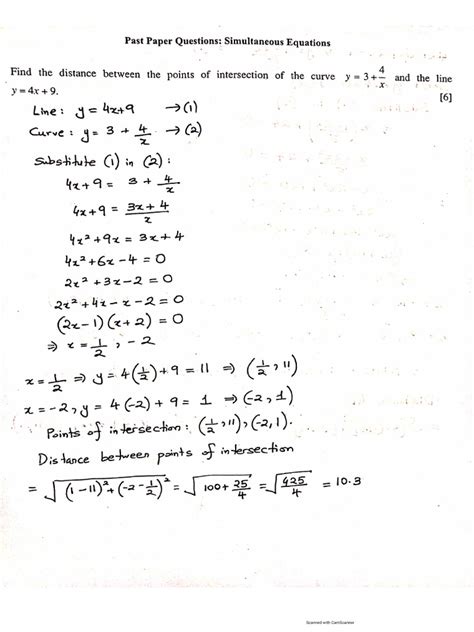 Past Paper Questions: Simultaneous Equations
Find the distance between the points of intersection of the curve y = 3 + 4/x and the line
y = 4x + 9.
[6]
Line: y = 4x+9 → (1)
Curve: y = 3 + 4/x → (2)
Substitute (1) in (2):
4x + 9 = 3 + 4/x
4x + 9 = 3x + 4/x
4x² + 9x = 3x + 4
4x² + 6x - 4 = 0
2x² + 3x - 2 = 0
2x² + 4x - x - 2 = 0
(2x - 1)(x + 2) = 0
⇒ x = 1/2, -2
x = 1/2 ⇒ y = 4(1/2) + 9 = 11 ⇒ (1/2, 11)
x = -2, y = 4(-2) + 9 = 1 ⇒ (-2, 1)
Points of intersection: (1/2, 11), (-2, 1).
Distance between points of intersection
= √((1 - 11)² + (-2 - 1/2)²) = √(100 + 25/4) = √(425/4) = 10.3
Scanned with CamScanner